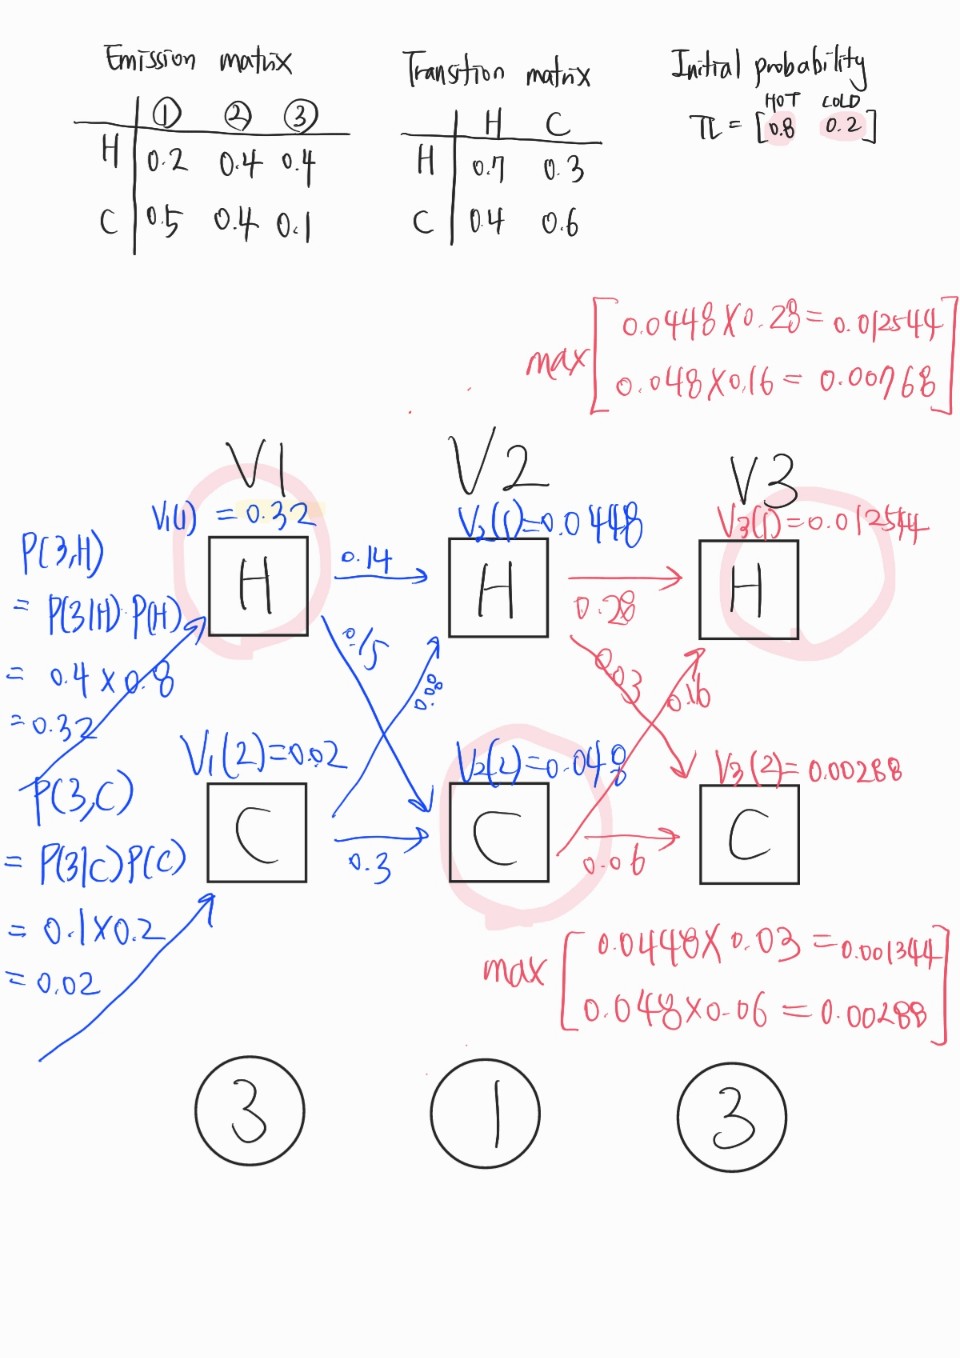 Emission matrix
① ② ③
H 0.2 0.4 0.4
C 0.5 0.4 0.1
Transition matrix
H C
H 0.7 0.3
C 0.4 0.6
Initial probability
HOT COLD
π = [0.8 0.2]
max [0.0448×0.28=0.012544
0.048×0.16=0.00768]
V1
V2
V3
V₁(1) = 0.32
V₂(1)=0.0448
V₃(1)=0.012544
P(3,H)
= P(3|H)·P(H)
= 0.4×0.8
=0.32
H
0.14
H
0.28
H
0.15
0.08
0.03
0.16
V₁(2)=0.02
V₂(2)=0.048
V₃(2)=0.00288
P(3,C)
= P(3|C)P(C)
= 0.1×0.2
= 0.02
C
0.3
C
0.06
C
max [0.0448×0.03=0.001344
0.048×0.06=0.00288]
3
1
3